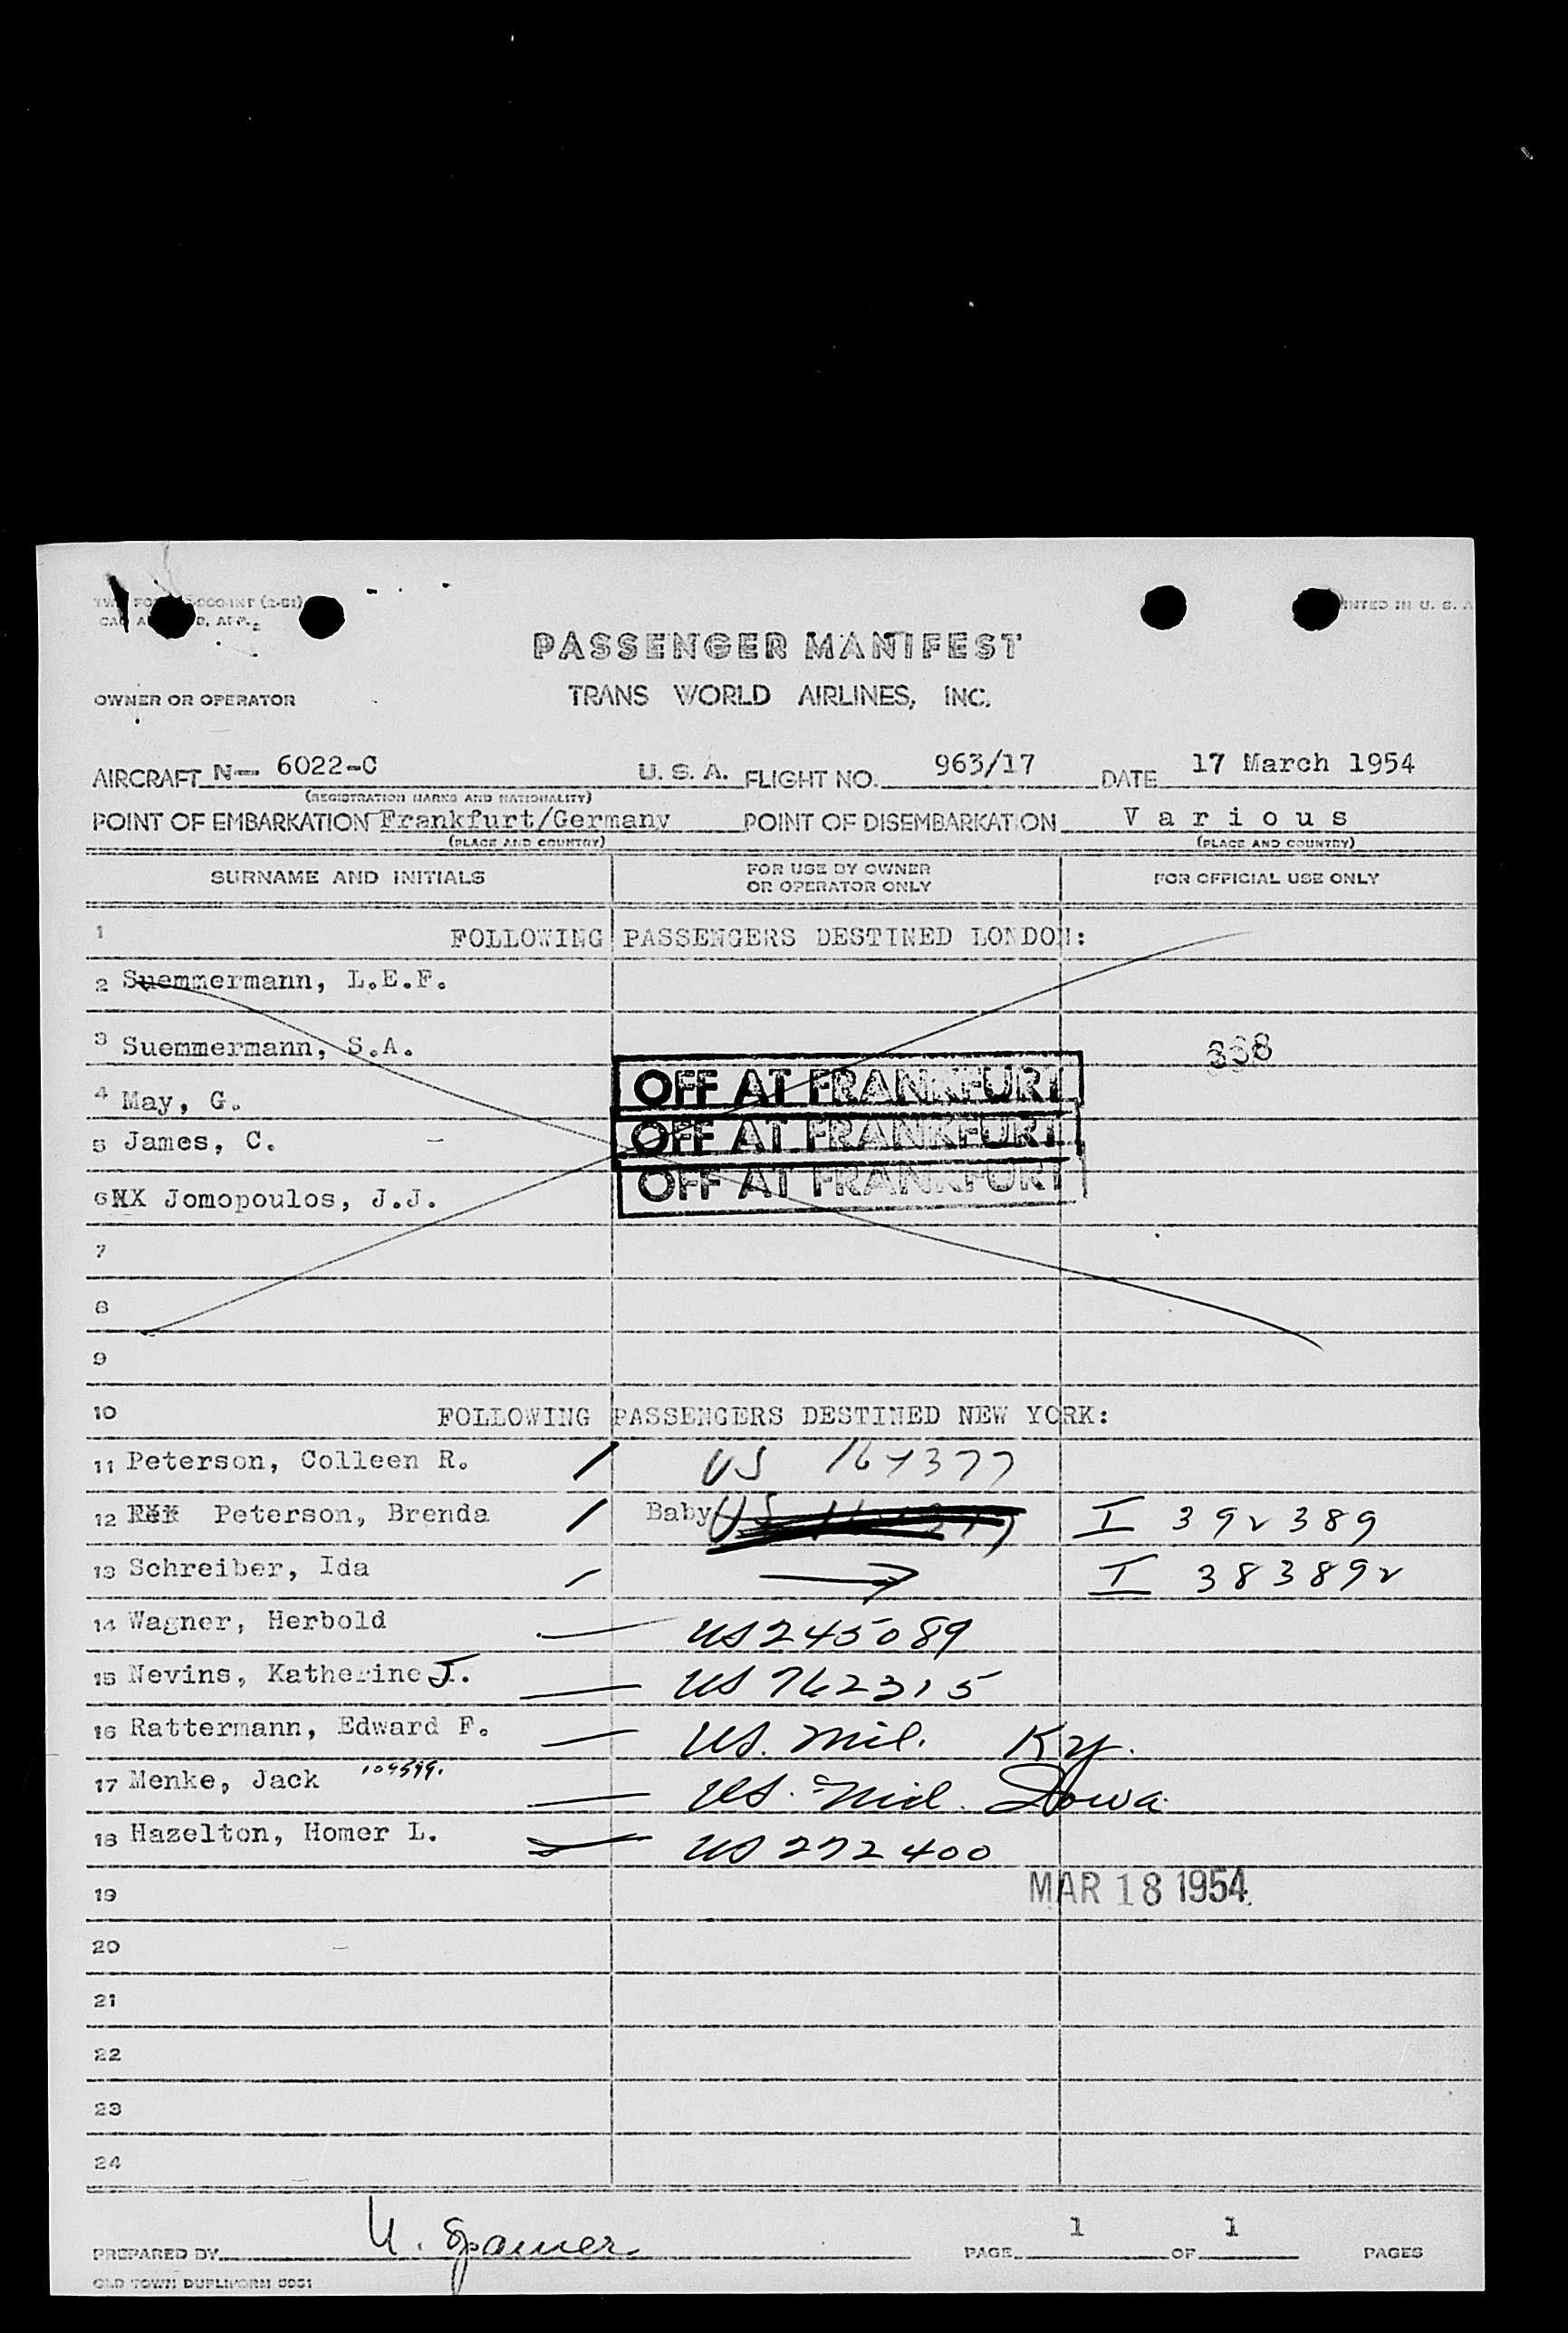 PRINTED IN U. S. A
PASSENGER MANIFEST
OWNER OR OPERATOR TRANS WORLD AIRLINES, INC.
AIRCRAFT N- 6022-C U. S. A. FLIGHT NO. 963/17 DATE 17 March 1954
(REGISTRATION MARKS AND NATIONALITY)
POINT OF EMBARKATION Frankfurt/Germany POINT OF DISEMBARKATION V a r i o u s
(PLACE AND COUNTRY) (PLACE AND COUNTRY)
SURNAME AND INITIALS FOR USE BY OWNER OR OPERATOR ONLY FOR OFFICIAL USE ONLY
1 FOLLOWING PASSENGERS DESTINED LONDON:
2 Suemmermann, L.E.F.
3 Suemmermann, S.A. 338
4 May, G. OFF AT FRANKFURT
5 James, C. - OFF AT FRANKFURT
6 Jomopoulos, J.J. OFF AT FRANKFURT
7
8
9
10 FOLLOWING PASSENGERS DESTINED NEW YORK:
11 Peterson, Colleen R. US
12 Peterson, Brenda Baby I 392389
13 Schreiber, Ida I 383892
14 Wagner, Herbold US 245089
15 Nevins, Katherine J. US 762315
16 Rattermann, Edward F. US. Mil. Ky.
17 Menke, Jack US. Mil. Iowa
18 Hazelton, Homer L. US 272400
19 MAR 18 1954
20
21
22
23
24
PREPARED BY PAGE 1 OF 1 PAGES
OLD TOWN DUPLIFORM